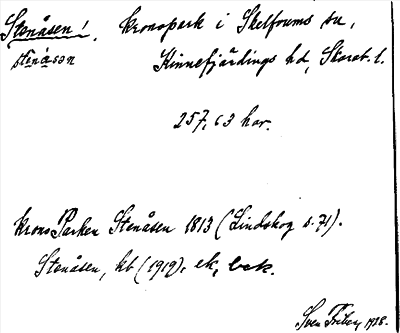 Stenåsen!, kronopark i Skelfvums sn,
stenåsen Kinnefjärdings hd, Skarab. l.
257,63 har.
krono Parken Stenåsen 1813 (Lindskog s. 71).
Stenåsen, kb (1919), ek, bok.
Sven Friberg 1928.